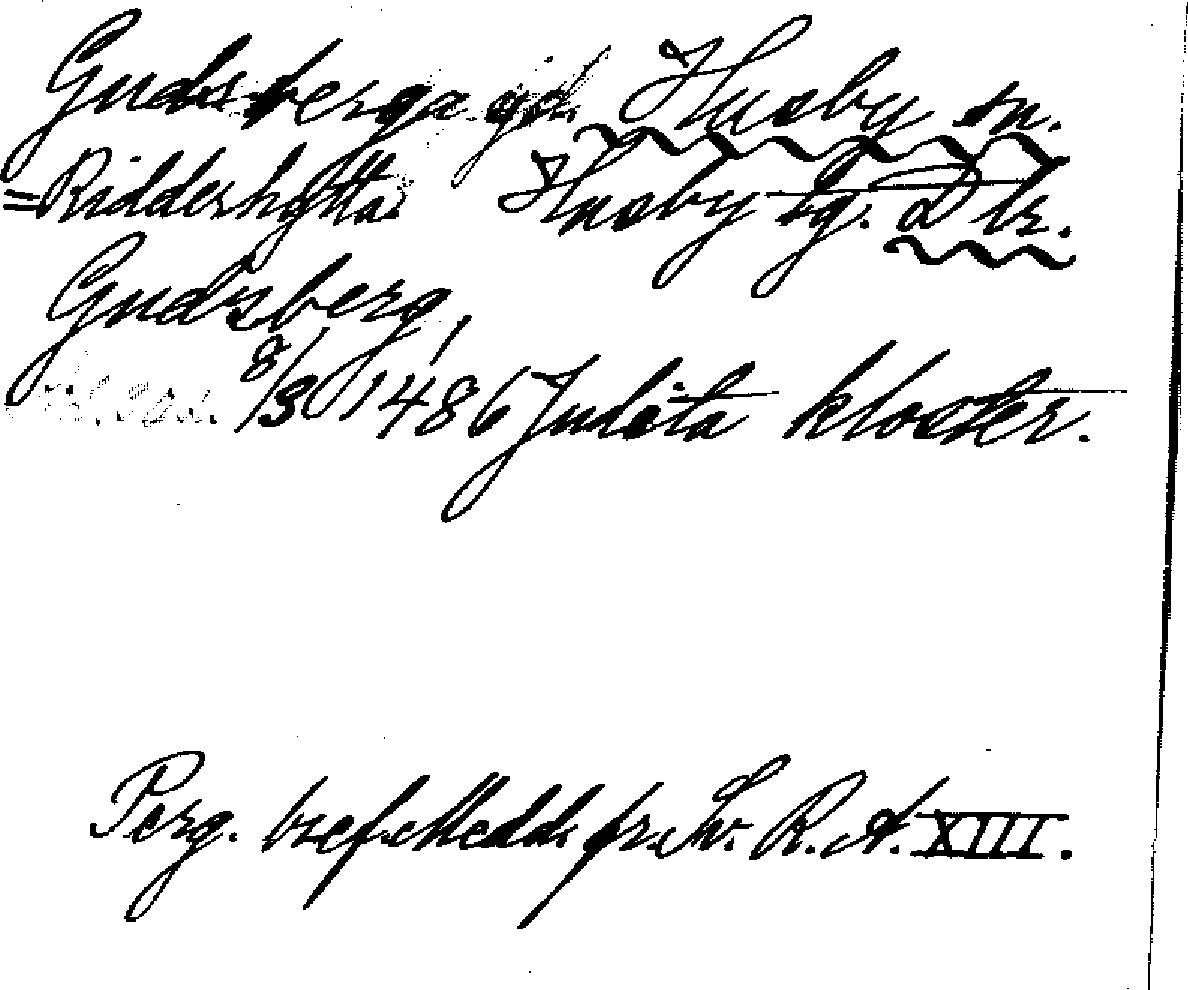 Gudsberga gd. Husby sn.
=Riddershyttan Husby tg. Dlr.
Gudsberg,
8/3 1486 Julita kloster.
Perg. bref. Medd. fr. Sv. R. A. XIII.